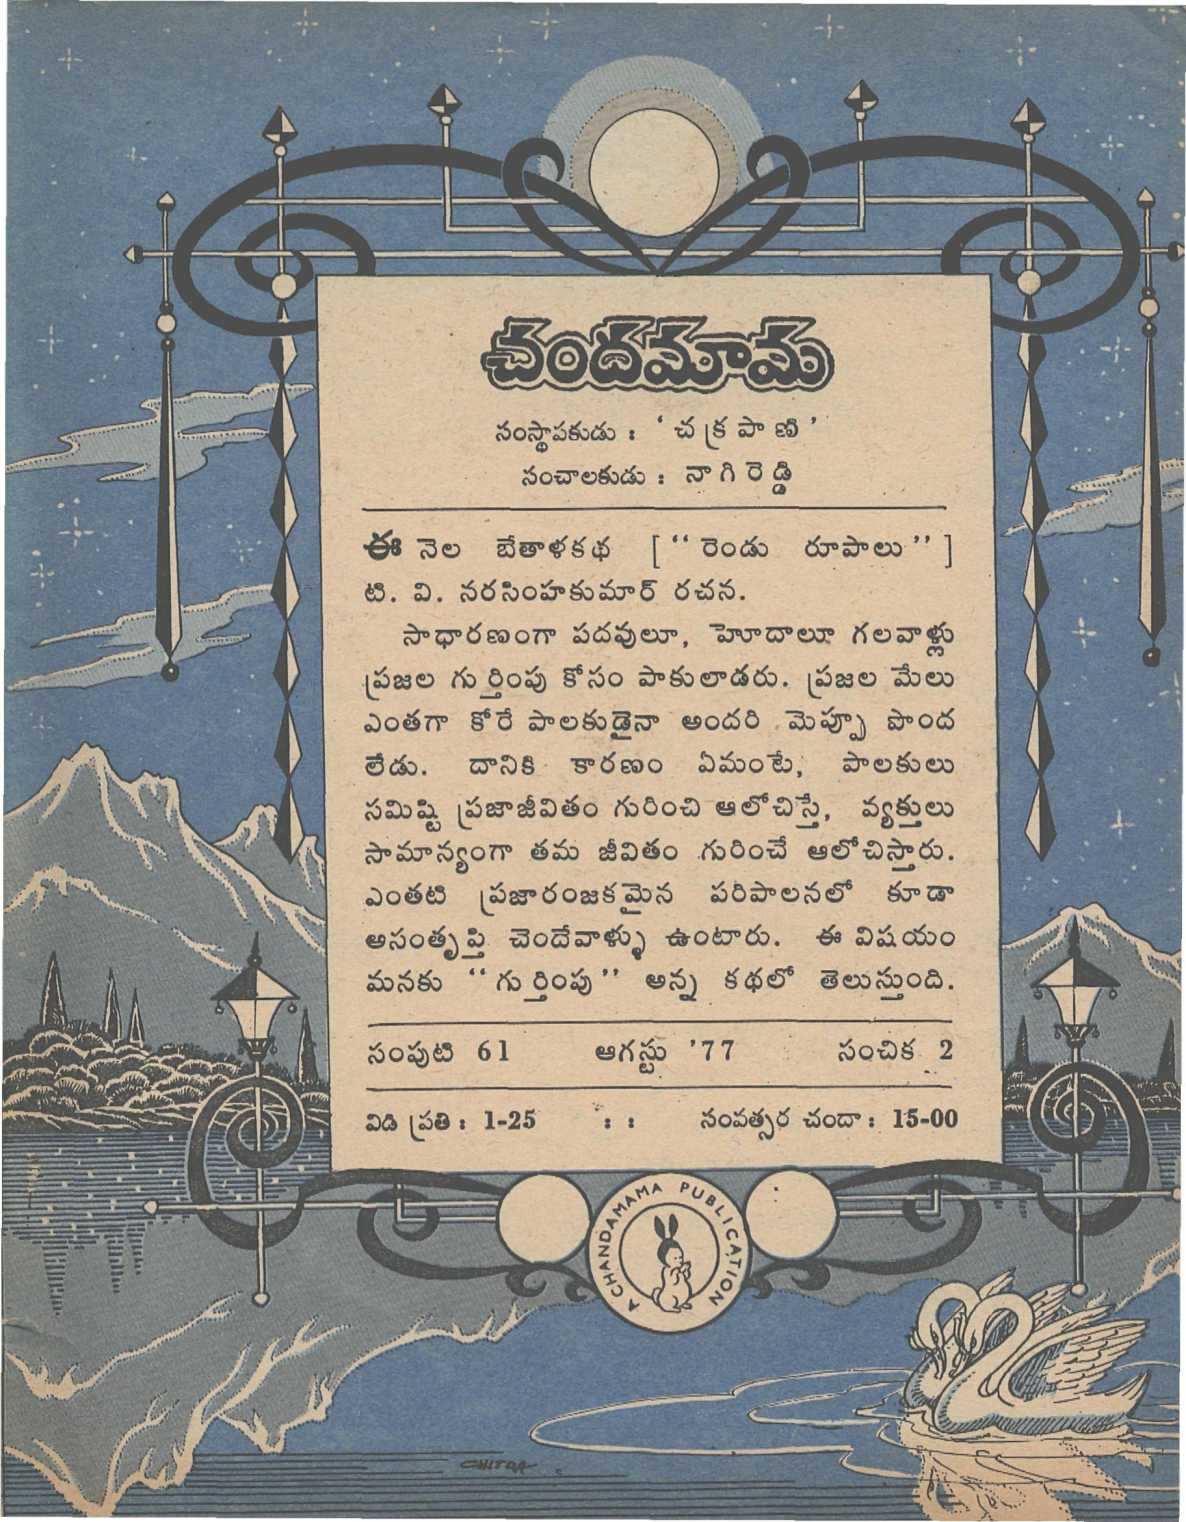 చందమామ
సంస్థాపకుడు : ‘ చ క్ర పా ణి ’
సంచాలకుడు : నా గి రె డ్డి
ఈ నెల బేతాళకథ [ “ రెండు రూపాలు ” ]
టి. వి. నరసింహకుమార్ రచన.
సాధారణంగా పదవులూ, హెూదాలూ గలవాళ్లు
ప్రజల గుర్తింపు కోసం పాకులాడరు. ప్రజల మేలు
ఎంతగా కోరే పాలకుడైనా అందరి మెప్పూ పొంద
లేడు. దానికి కారణం ఏమంటే, పాలకులు
సమిష్టి ప్రజాజీవితం గురించి ఆలోచిస్తే, వ్యక్తులు
సామాన్యంగా తమ జీవితం గురించే ఆలోచిస్తారు.
ఎంతటి ప్రజారంజకమైన పరిపాలనలో కూడా
అసంతృప్తి చెందేవాళ్ళు ఉంటారు. ఈ విషయం
మనకు “గుర్తింపు” అన్న కథలో తెలుస్తుంది.
సంపుటి 61 ఆగస్టు ’77 సంచిక 2
విడి ప్రతి : 1-25 : : సంవత్సర చందా : 15-00
A CHANDAMAMA PUBLICATION
CHITRA